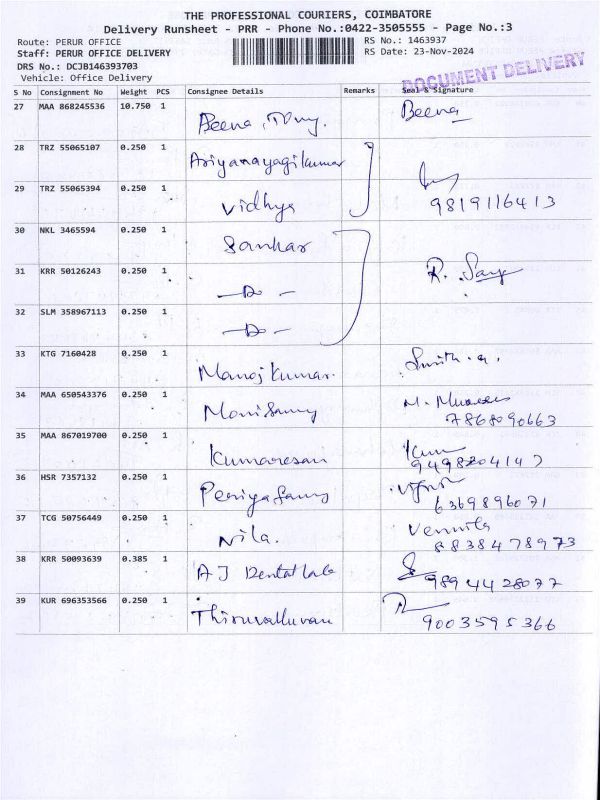 THE PROFESSIONAL COURIERS, COIMBATORE
Delivery Runsheet - PRR - Phone No.:0422-3505555 - Page No.:3
Route: PERUR OFFICE
RS No.: 1463937
Staff: PERUR OFFICE DELIVERY
RS Date: 23-Nov-2024
DRS No.: DCJB146393703
Vehicle: Office Delivery
DOCUMENT DELIVERY
S No Consignment No Weight PCS Consignee Details Remarks Seal & Signature
27 MAA 868245536 10.750 1 Beena Tony. Beena
28 TRZ 55065107 0.250 1 Ariyanayagikumar
29 TRZ 55065394 0.250 1 Vidhya 9819116413
30 NKL 3465594 0.250 1 Sankar
31 KRR 50126243 0.250 1 -D- R.
32 SLM 358967113 0.250 1 -D-
33 KTG 7160428 0.250 1 Manoj Kumar.
34 MAA 650543376 0.250 1 MoniSamy M.
7868090663
35 MAA 867019700 0.250 1 Kumaresan
36 HSR 7357132 0.250 1 PeriyaSamy
6369896071
37 TCG 50756449 0.250 1 Nila. Vennila
8838478973
38 KRR 50093639 0.385 1 AJ Dental Lab 9894428077
39 KUR 696353566 0.250 1 Thiruvalluvan
9003595366